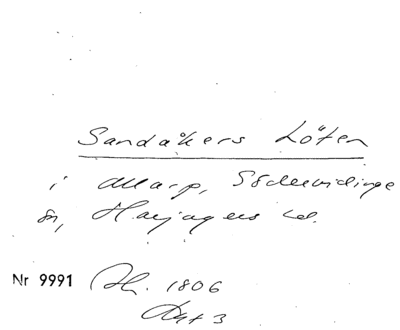 Sandåkers Löten
i Allarp, Södervidinge
sn, Harjagers hd.
Nr 9991 Sk. 1806
Akt 3